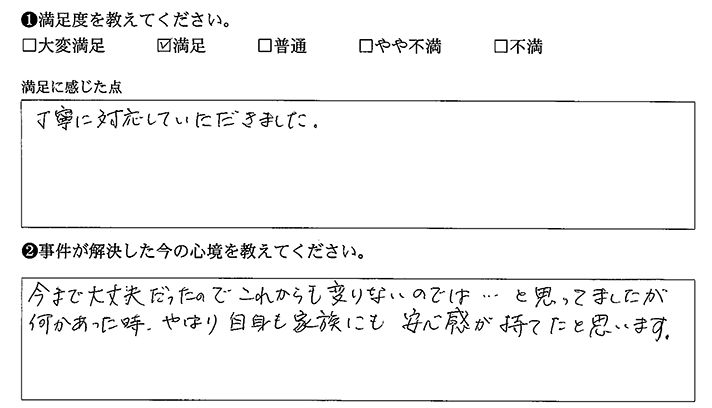 ❶満足度を教えてください。
☐大変満足 ☑満足 ☐普通 ☐やや不満 ☐不満
満足に感じた点
丁寧に対応していただきました。
❷事件が解決した今の心境を教えてください。
今まで大丈夫だったのでこれからも変りないのでは…と思ってましたが
何かあった時、やはり自身も家族にも安心感が持てたと思います。